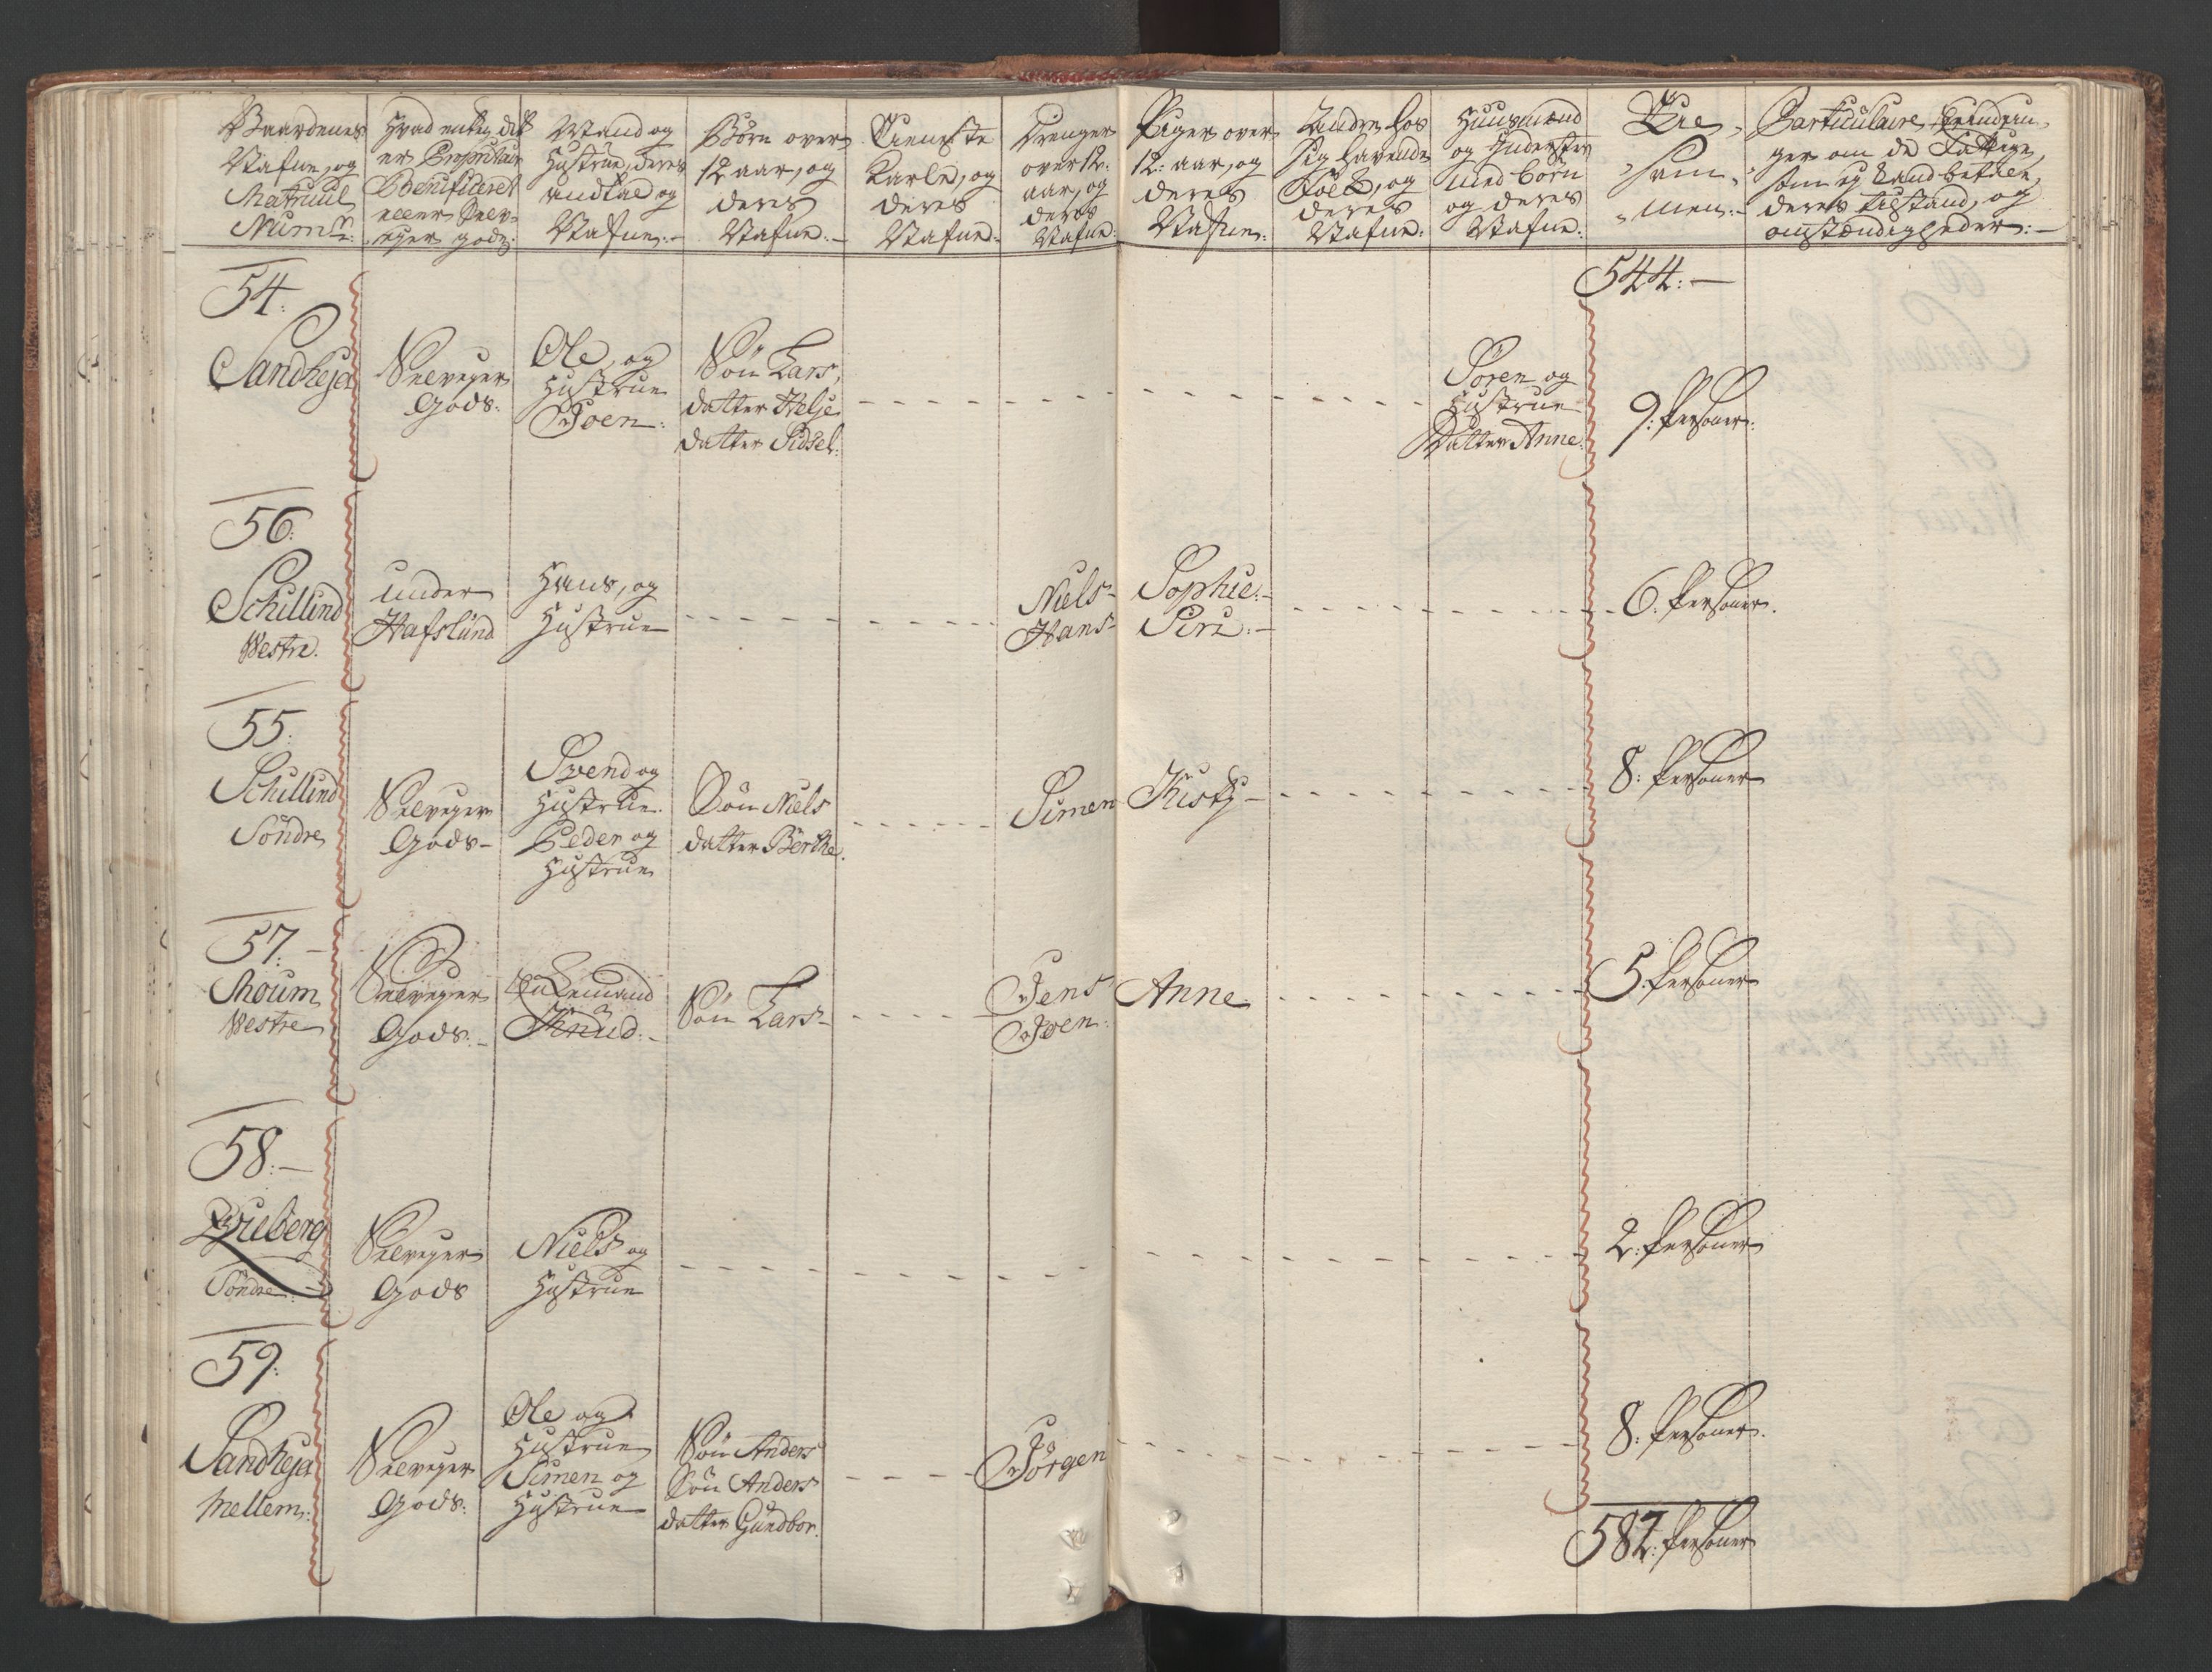 Gaardenes
Nafne, og
Matricul
Num:
Hvad enten det
er Proprietair
Beneficeret
eller Selv-
eyer gods.
Mand og
Hustrue, deres
andtal og
Nafne:-
Børn over
12 aar, og
deres
Nafne:-
Tieneste
Karle, og
deres
Nafne.
Drenger
over 12:
aar, og
deres
Nafne:
Piger over
12: aar, og
deres
Nafne:
Andre hos
sig havende
Folk, og
deres
Nafne:
Huusmænd
og Inderster
med børn
og deres
Nafne:
Til-
sam-
men:-
Particulaire Erindrin-
ger om de Fattige,
som ej kand betale,
deres tilstand, og
omstændigheder:-
544:-
54:
Sandheja
Selveyer
Gods:
Ole, og
Hustrue
Joen:
Søn Lars,
datter Helje
datter Sidsel:
Søren og
Hustrue
Datter Anne:
9: Personer:
56:
Schillind
Westre.
under
Hafslund
Hans, og
Hustrue
Niels-
Hans-
Sophie:-
Siri:-
6. Personer.
55:
Schillind
Søndre
Selveyer
Gods-
Svend og
Hustrue.
Peder og
Hustrue
Søn Niels
datter Berthe.
Simen
Kisty-
8: Personer
57:-
Moum
Westre
Selveyer
Gods:-
En Lemand
Knud:-
Søn Lars-
Jens
Joen:
Anne
5. Personer
58:-
Søndre
Selveyer
Gods
Niels og
Hustrue
2: Personer
59:
Sandheja
Mellem:
Selveyer
Gods:
Ole og
Hustrue
Simen og
Hustrue
Søn Anders
Søn Anders
datter Gundbor.
Jørgen
8: Personer.
582: Personer